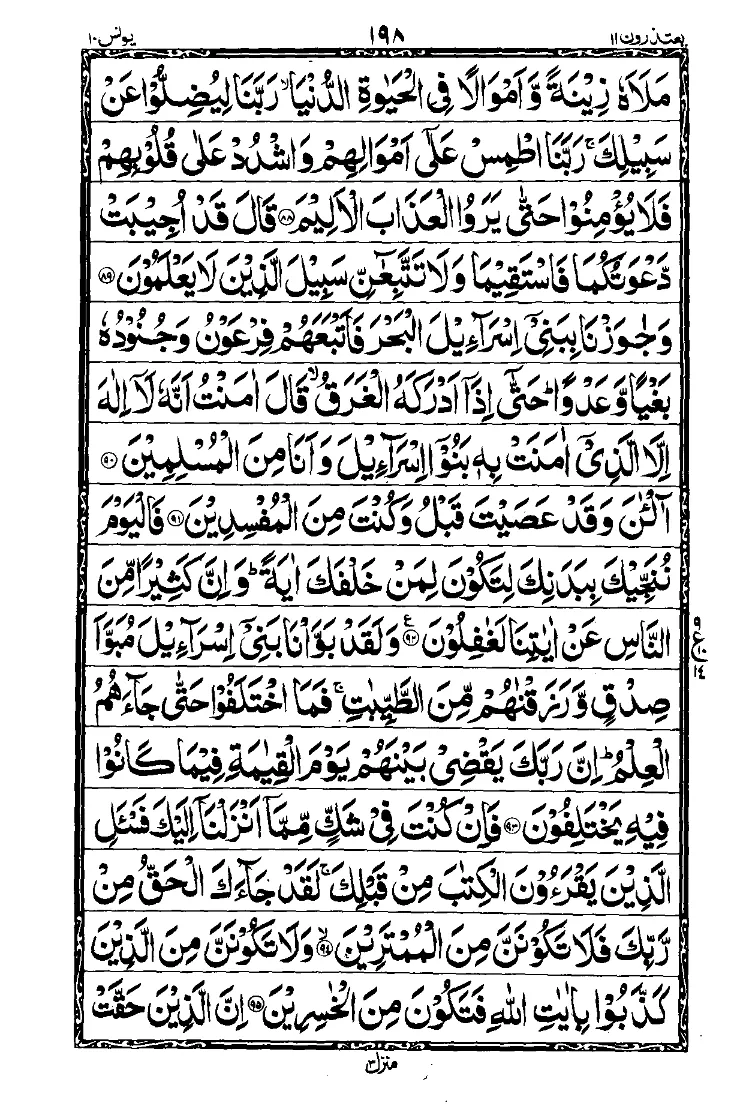 یعتذرون ۱۱ ۱۹۸ یونس ۱۰
مَلَاَهٗ زِیْنَةً وَّ اَمْوَالًا فِی الْحَیٰوةِ الدُّنْیَا ۙ رَبَّنَا لِیُضِلُّوْا عَنْ
سَبِیْلِكَ ۚ رَبَّنَا اطْمِسْ عَلٰۤی اَمْوَالِهِمْ وَ اشْدُدْ عَلٰی قُلُوْبِهِمْ
فَلَا یُؤْمِنُوْا حَتّٰی یَرَوُا الْعَذَابَ الْاَلِیْمَ ﴿۸۸﴾ قَالَ قَدْ اُجِیْبَتْ
دَّعْوَتُكُمَا فَاسْتَقِیْمَا وَ لَا تَتَّبِعٰٓنِّ سَبِیْلَ الَّذِیْنَ لَا یَعْلَمُوْنَ ﴿۸۹﴾
وَ جٰوَزْنَا بِبَنِیْۤ اِسْرَآءِیْلَ الْبَحْرَ فَاَتْبَعَهُمْ فِرْعَوْنُ وَ جُنُوْدُهٗ
بَغْیًا وَّ عَدْوًا ؕ حَتّٰۤی اِذَاۤ اَدْرَكَهُ الْغَرَقُ ۙ قَالَ اٰمَنْتُ اَنَّهٗ لَاۤ اِلٰهَ
اِلَّا الَّذِیْۤ اٰمَنَتْ بِهٖ بَنُوْۤا اِسْرَآءِیْلَ وَ اَنَا مِنَ الْمُسْلِمِیْنَ ﴿۹۰﴾
آٰلْـٰٔنَ وَ قَدْ عَصَیْتَ قَبْلُ وَ كُنْتَ مِنَ الْمُفْسِدِیْنَ ﴿۹۱﴾ فَالْیَوْمَ
نُنَجِّیْكَ بِبَدَنِكَ لِتَكُوْنَ لِمَنْ خَلْفَكَ اٰیَةً ؕ وَ اِنَّ كَثِیْرًا مِّنَ
النَّاسِ عَنْ اٰیٰتِنَا لَغٰفِلُوْنَ ﴿۹۲﴾ ع وَ لَقَدْ بَوَّاْنَا بَنِیْۤ اِسْرَآءِیْلَ مُبَوَّاَ
۹ ع ۱۰ ۱۴
صِدْقٍ وَّ رَزَقْنٰهُمْ مِّنَ الطَّیِّبٰتِ ۚ فَمَا اخْتَلَفُوْا حَتّٰی جَآءَهُمُ
الْعِلْمُ ؕ اِنَّ رَبَّكَ یَقْضِیْ بَیْنَهُمْ یَوْمَ الْقِیٰمَةِ فِیْمَا كَانُوْا
فِیْهِ یَخْتَلِفُوْنَ ﴿۹۳﴾ فَاِنْ كُنْتَ فِیْ شَكٍّ مِّمَّاۤ اَنْزَلْنَاۤ اِلَیْكَ فَسْـَٔلِ
الَّذِیْنَ یَقْرَءُوْنَ الْكِتٰبَ مِنْ قَبْلِكَ ۚ لَقَدْ جَآءَكَ الْحَقُّ مِنْ
رَّبِّكَ فَلَا تَكُوْنَنَّ مِنَ الْمُمْتَرِیْنَ ﴿۹۴﴾ ۙ وَ لَا تَكُوْنَنَّ مِنَ الَّذِیْنَ
كَذَّبُوْا بِاٰیٰتِ اللّٰهِ فَتَكُوْنَ مِنَ الْخٰسِرِیْنَ ﴿۹۵﴾ اِنَّ الَّذِیْنَ حَقَّتْ
منزل ۳